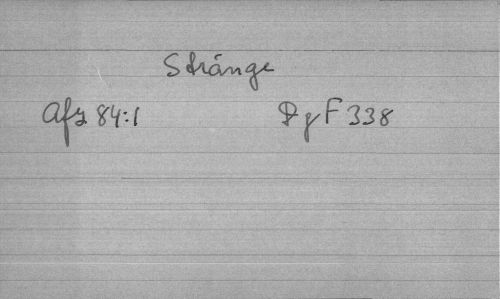 Stränge
Afz 84:1 Dg F 338